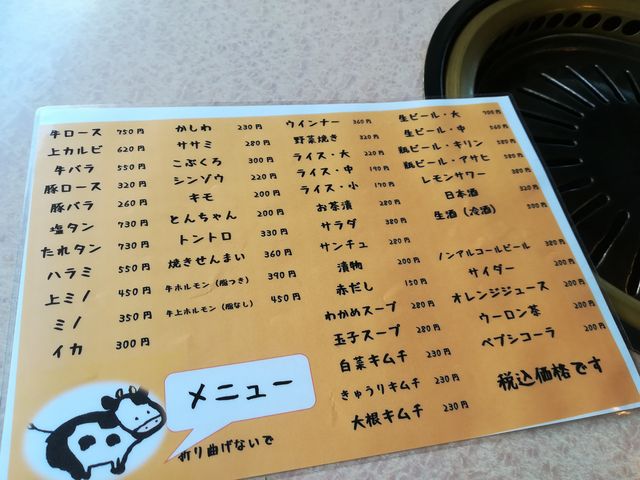 牛ロース 750円
上カルビ 620円
牛バラ 550円
豚ロース 320円
豚バラ 260円
塩タン 730円
たれタン 730円
ハラミ 550円
上ミノ 450円
ミノ 350円
イカ 300円
かしわ 230円
ササミ 280円
こぶくろ 300円
シンゾウ 220円
キモ 200円
とんちゃん 200円
トントロ 330円
焼きせんまい 360円
牛ホルモン（脂つき） 390円
牛上ホルモン（脂なし） 450円
ウインナー 360円
野菜焼き 320円
ライス・大 220円
ライス・中 190円
ライス・小 170円
お茶漬 280円
サラダ 380円
サンチュ 280円
漬物 200円
赤だし 150円
わかめスープ 280円
玉子スープ 280円
白菜キムチ 230円
きゅうりキムチ 230円
大根キムチ 230円
生ビール・大
生ビール・中 560円
瓶ビール・キリン 580円
瓶ビール・アサヒ 580円
レモンサワー 380円
日本酒 320円
生酒（冷酒） 500円
ノンアルコールビール 380円
サイダー 200円
オレンジジュース 200円
ウーロン茶 200円
ペプシコーラ 200円
税込価格です
メニュー
折り曲げないで